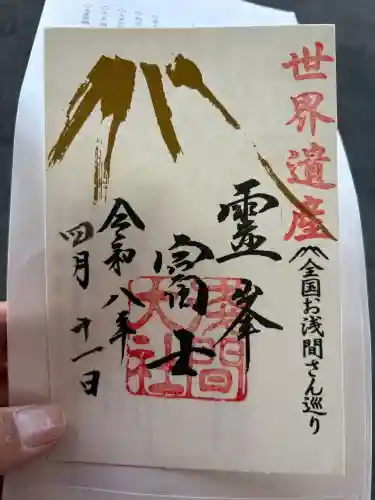 世界遺産
全国お浅間さん巡り
霊峯
富士
浅間
大社
令和八年
四月十一日